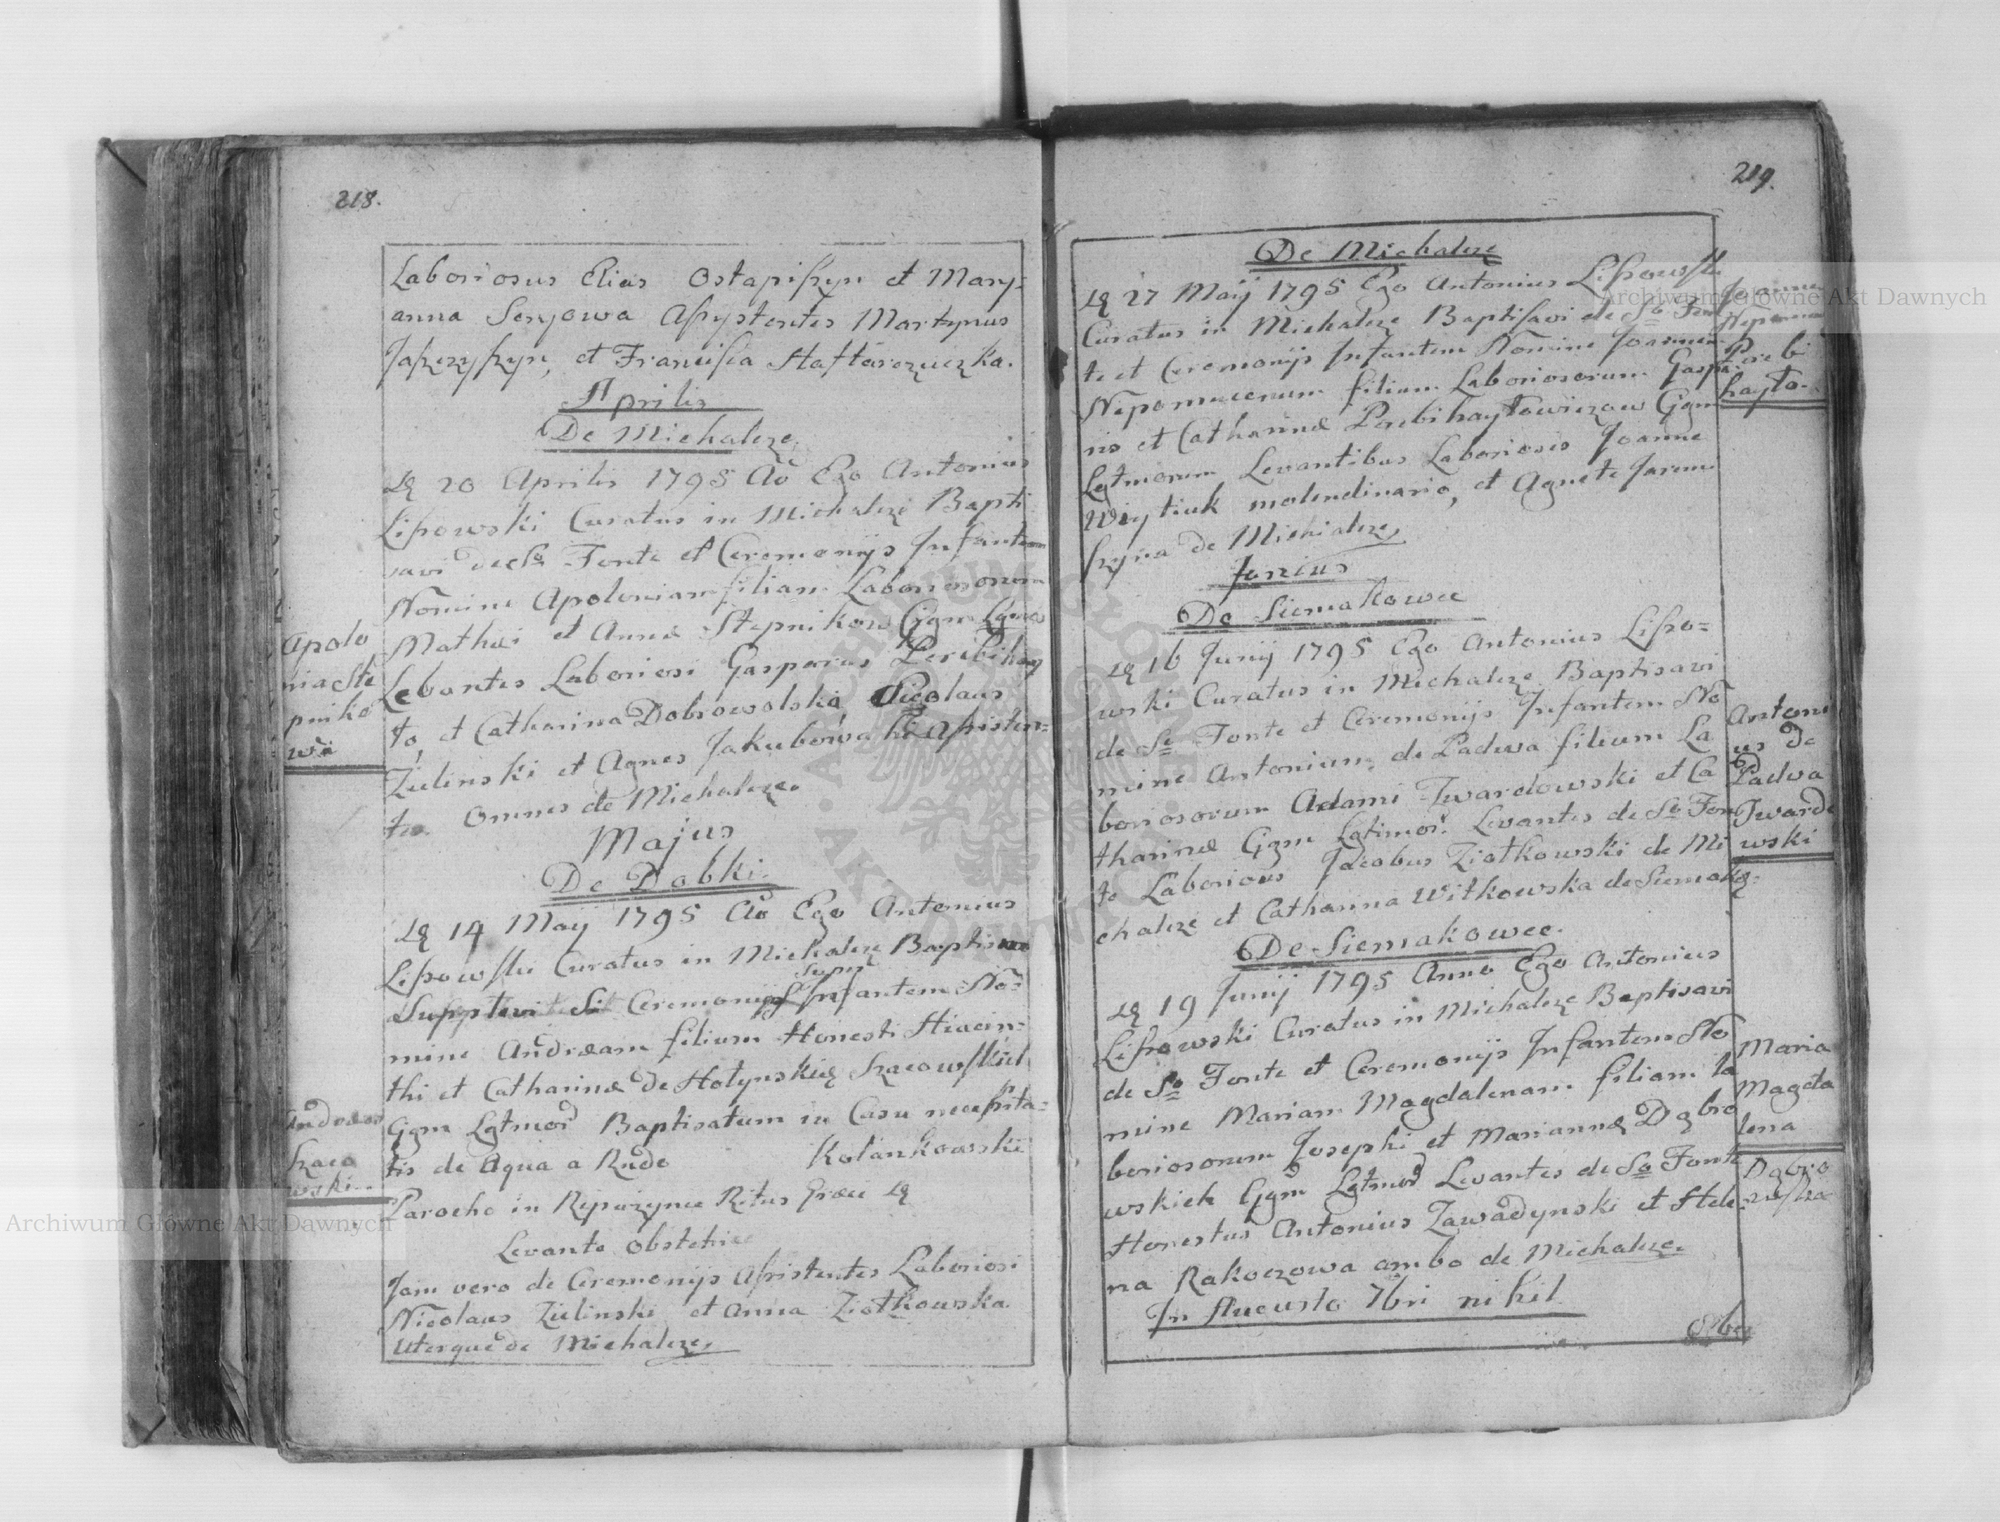 218.
Laboriosus Elias Ostapiszyn et Mary-
anna Senyowa Assystentes Martynus
et Francisca
Aprilis
De Michalcze
20 Aprilis 1795 Ao Ego Antonius
Lissowski Curatus in Michalcze Bapti
savi de Fonte et Ceremonijs Infantem
Nomine Apoloniam filiam Laboriosorum
Mathei et Anna Stepnikow Cgm
Levantes Laboriosi Gasparus Perebihay
to et Catharina Dobrowolska Nicolaus
Zielinski et Agnes Jakubowska Assisten-
tes omnes de Michalcze.
Apolo
nia Ste
pniko
wa
Majus
De Babki.
14 May 1795 Ao Ego Antonius
Lissowski Curatus in Michalcze
Supplevi Ceremonijs Infantem No-
mine Andraeam filium Honesti Hiacin-
thi et Catharinae de Hotynskie
Cgm Lgtmor Baptisatum in Casu necessita-
tis de Aqua a Rndo Kolankowski
Parocho in Repuzynce Ritus Graeci
Levante obstetrice
Jam vero de Ceremonijs Assistentes Laboriosi
Nicolaus Zielinski et Anna Ziolkowska
Uterque de Michalcze.
Andraeas
wski.
219.
De Michalcze
27 Maij 1795 Ego Antonius Lissowski
Curatus in Michalcze Baptisavi de So Fon
te et Ceremonijs Infantem Nomine Joannem
Nepomucenum filium Laboriosorum Gaspa
ris et Catharinae Perebihaytowiczow Cgm
Lgtmorum Levantibus Laboriosis Joanne
Woytiuk molendinario, et Agnete Jarem
szyna de Michalcze.
Joannes
Nepomu
Perebi
hayto.
Junius
De Siemakowce
16 Junij 1795 Ego Antonius Lisso=
wski Curatus in Michalcze Baptisavi
de So Fonte et Ceremonijs Infantem No
mine Antonium de Padwa filium La
boriosorum Adami Twardowski et Ca
tharinae Cgm Lgtimor. Levantes de So Fon
te Laboriosus Jacobus Ziolkowski de Mi
chalcze et Catharina Witkowska de Siemakc:
Antoni
us de
Padwa
Twardo
wski
De Siemakowce.
19 Junij 1795 Anno Ego Antonius
Lissowski Curatus in Michalcze Baptisavi
de So Fonte et Ceremonijs Infantem No
mine Mariam Magdalenam filiam la
boriosorum Josephi et Marianna Dabro
wskich Cgm Lgtmor Levantes de So Fonte
Honestus Antonius Zawadynski et Hele-
na Rakoczowa ambo de Michalcze.
Maria
Magda
lena
Dabro
wska
In Augusto 7bri nihil
8ber
Archiwum Główne Akt Dawnych
Archiwum Główne Akt Dawnych
ARCHIWUM GŁÓWNE
AKT DAWNYCH